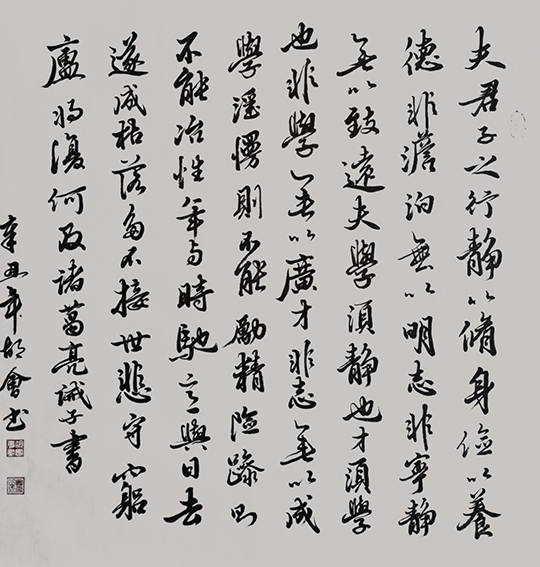 夫君子之行静以脩身儉以養
德非澹泊無以明志非寧静
無以致遠夫學須静也才須學
也非學無以廣才非志無以成
學淫慢則不能勵精險躁則
不能冶性年与時馳意與日去
遂成枯落多不接世悲守窮
廬将復何及諸葛亮誡子書
辛丑年胡會书